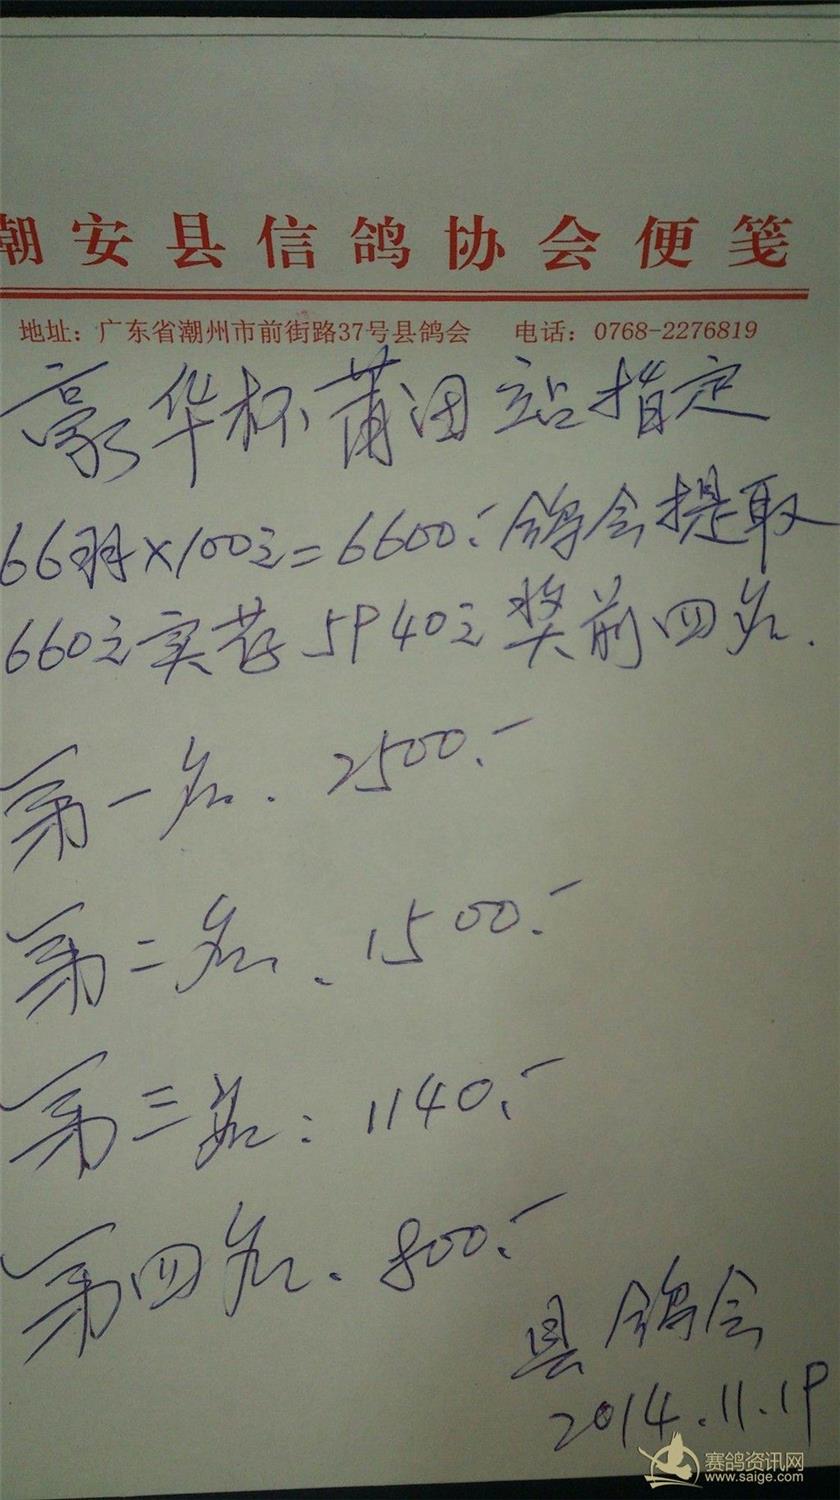 潮安县信鸽协会便笺
地址：广东省潮州市前街路37号县鸽会 电话：0768-2276819
豪华杯莆田站指定
66羽×100元=6600.- 鸽会提取
660元实存5940元奖前四名.
第一名. 2500.-
第二名. 1500.-
第三名: 1140.-
第四名. 800.-
县鸽会
2014.11.19
赛鸽资讯网
www.saige.com